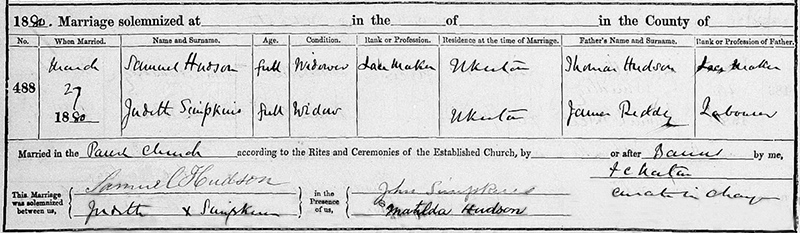 1880. Marriage solemnized at in the of in the County of
No. When Married. Name and Surname. Age. Condition. Rank or Profession. Residence at the time of Marriage. Father's Name and Surname. Rank or Profession of Father.
488 March 27 1880 Samuel Hudson full Widower Lace Maker Ilkeston Thomas Hudson Lace Maker
Judith Simpkins full Widow Ilkeston James Reddy Labourer
Married in the Parish Church according to the Rites and Ceremonies of the Established Church, by or after Banns by me,
This Marriage was solemnized between us, Samuel Hudson in the Presence of us, John Simpkins
Judith x Simpkins Matilda Hudson Curate in charge